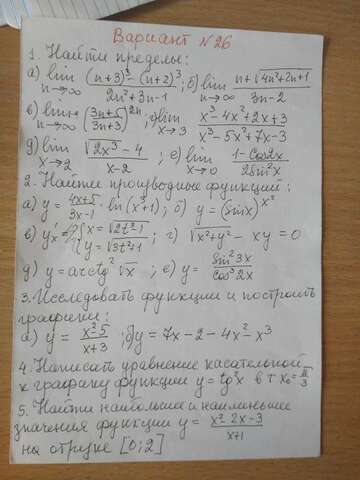 Вариант №26
1. Найти пределы:
а) lim n→∞ ((n+3)³-(n+2)³)/(2n²+3n-1); б) lim n→∞ (n+√(4n²+2n+1))/(3n-2)
в) lim n→∞ ((3n+5)/(3n+3))^(2n); г) lim x→3 (x³-4x²+2x+3)/(x³-5x²+7x-3)
д) lim x→2 (√(2x³)-4)/(x-2); е) lim x→0 (1-cos2x)/(2sin²x)
2. Найти производные функций:
а) y=(4x+5)/(3x-1)·ln(x³+1); б) y=(sinx)^(x²)
в) y'ₓ=? {x=√(2t²-1) {y=√(3t²+1); г) √(x²+y²)-xy=0
д) y=arcctg²√x; е) y=sin²3x/cos³2x
3. Исследовать функции и построить
графики:
а) y=(x²5)/(x+3); б) y=7x-2-4x²-x³
4. Написать уравнение касательной
к графику функции y=tg²x в т x₀=π/3
5. Найти наибольшие и наименьшие
значения функции y=(x²-2x-3)/(x+1)
на отрезке [0;2]